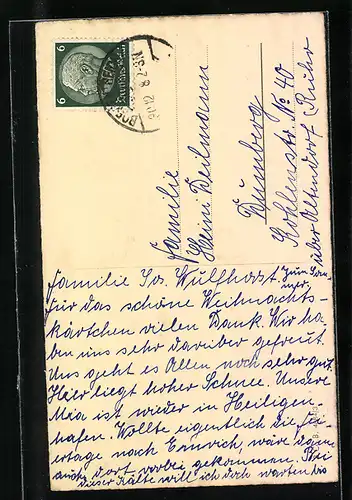 6
6
Deutsches Reich
Familie
Heini Deilmann
Dumberg
Kohlenstr. No 40
über Altendorf Ruhr
Familie Sv. Wulfhorst.
für das schöne Weihnachts-
kärtchen vielen Dank. Wir ha
ben uns sehr darüber gefreut.
Uns geht es Allen noch sehr gut.
Hier liegt hoher Schnee. Unsere
Mia ist wieder in Heiligen-
hafen. Wollte eigentlich die Fei
ertage nach kommen, wäre dann
auch dort vorbei gekommen. Bei
dieser Kälte will ich doch warten bis
zum Som
mer.